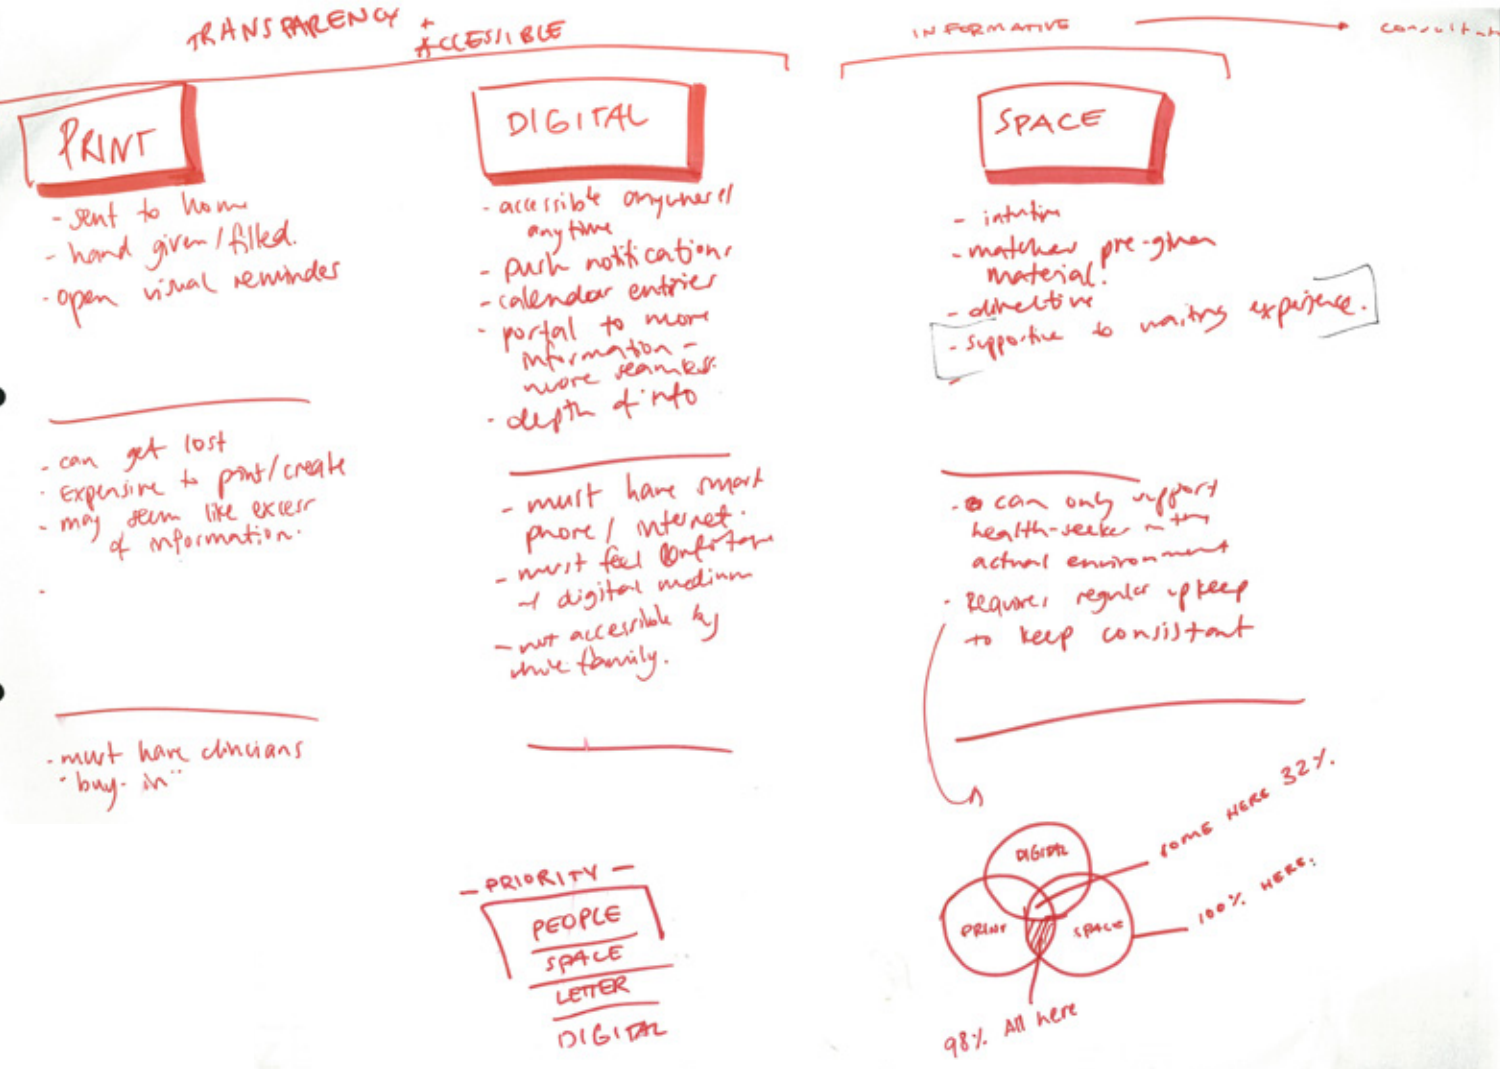 TRANSPARENCY +
ACCESSIBLE
INFORMATIVE
PRINT
- sent to home
- hand given/filled.
- open visual reminder
- can get lost
- Expensive to print/create
- may seem like excess
of information.
- must have clincians
"buy-in"
DIGITAL
- accessible anywhere/
anytime
- push notifications
- calendar entries
- portal to more
information -
more seamless.
- depth of info
- must have smart
phone/internet.
- must feel
digital medium
- not accessible by
whole family.
- PRIORITY -
PEOPLE
SPACE
LETTER
DIGITAL
SPACE
- intuitive
- matches pre-given
material.
- directive
- supportive to waiting experience.
- can only support
health-seeker in the
actual environment
- Requires regular upkeep
to keep consistant
DIGITAL
PRINT
SPACE
SOME HERE 32%.
100% HERE.
98% All here